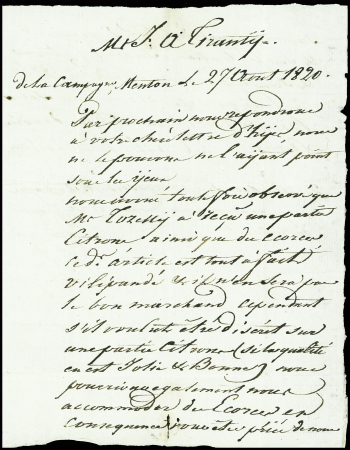 Mr J. A Tiranty.
De la Campagne, Menton Le 27 Aout 1820.
Par prochain nous repondrons
à votre cheré lettre d'hijé, nous
ne le pouvons ne l'ayant point
sous les yeux
nous avons toute fois observé que
Mr à reçu une partie
Citrons, ainsi que de ecorces
ce dr. article est tout à fait
vilipandé & il n'en sera pas
le bon marchand cependant
s'il voulut être discret sur
une partie Citrons (si la qualité
en est Jolie & Bonne) nous
pourrions egalement nous
accommoder de Ecorces en
consequence vous ete prié de nous